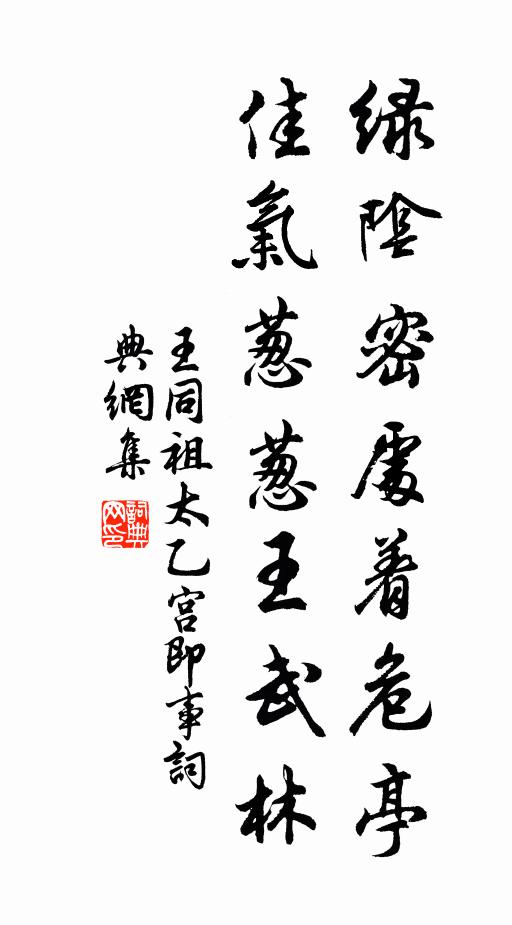 綠陰密處着危亭
佳氣葱葱王武林
王同祖太乙宮即事詞
典網集
詞典網印